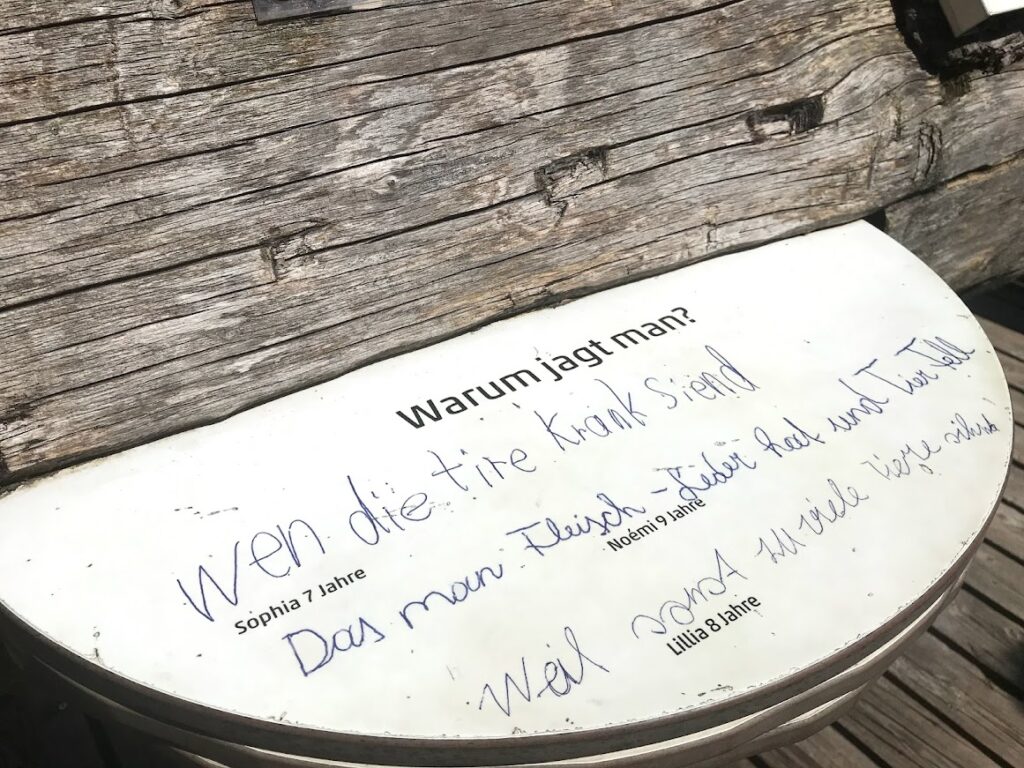 Warum jagt man?
Wen die tire krank Siend
Sophia 7 Jahre
Das man Fleisch - Leder hat und Tier Fell
Noémi 9 Jahre
Weil sonst zu viele Tiere sind
Lillia 8 Jahre